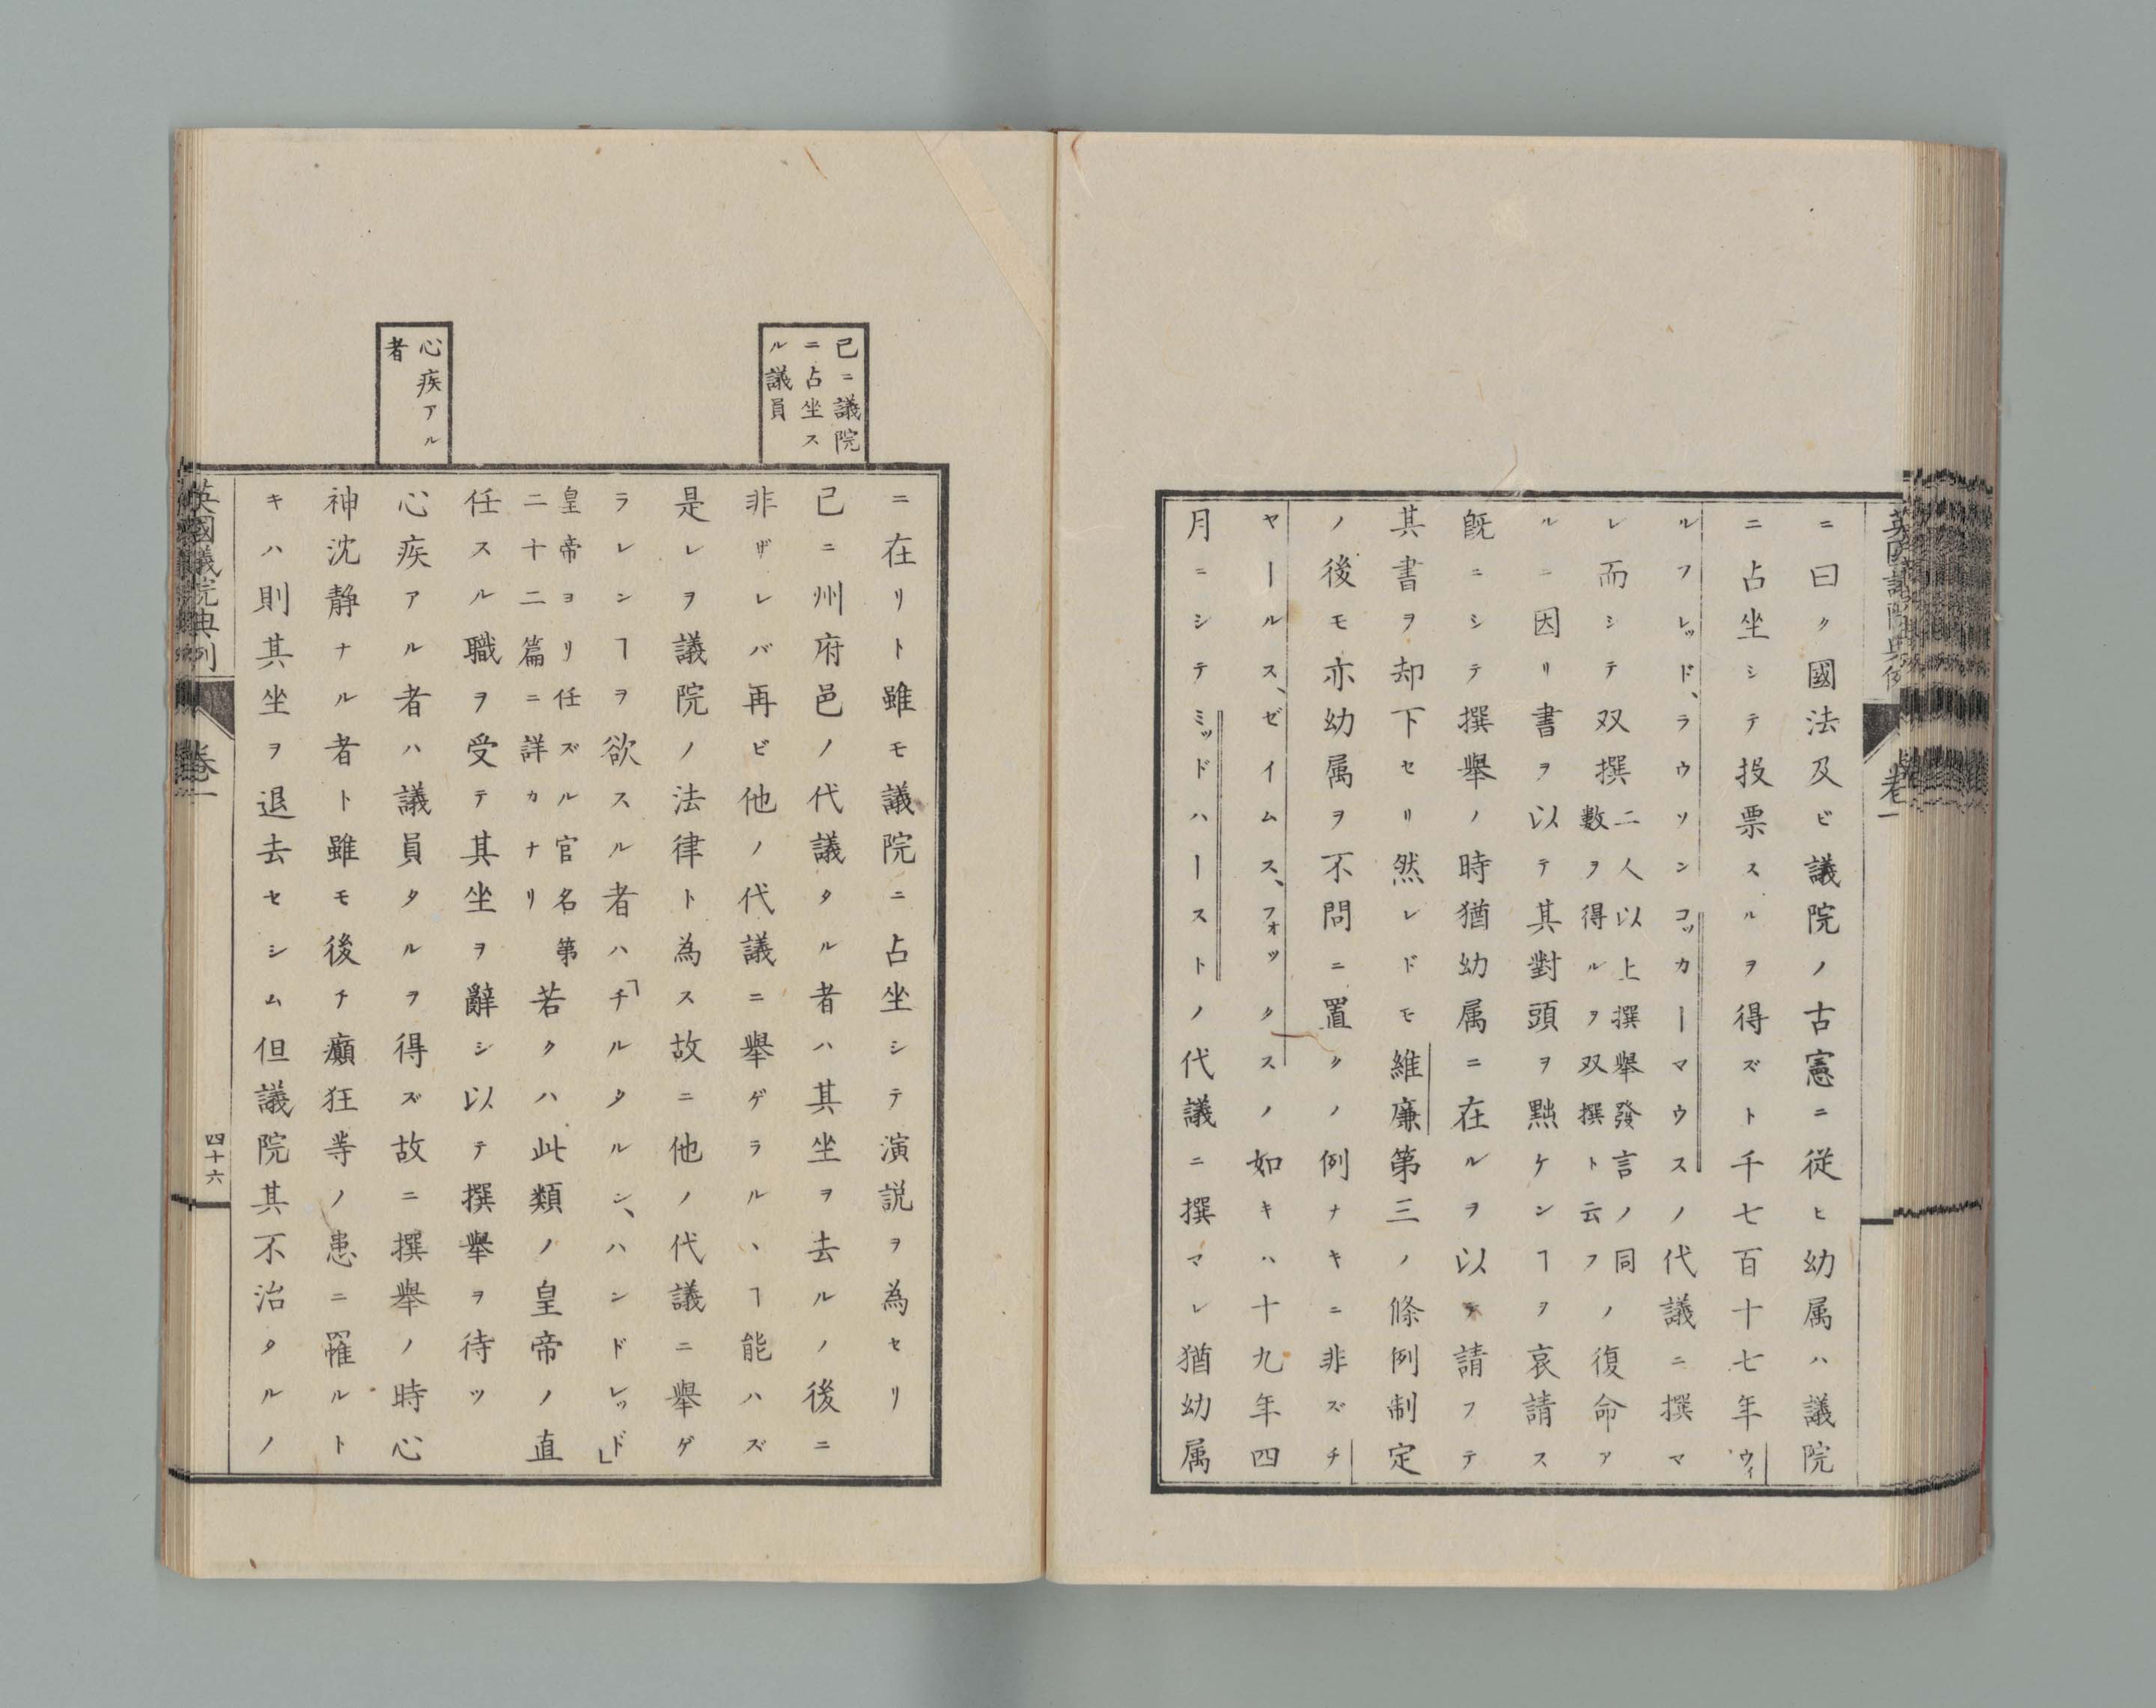 ニ曰ク國法及ビ議院ノ古憲ニ従ヒ幼属ハ議院
ニ占坐シテ投票スルヲ得ズト千七百十七年ウィ
ルフレッド、ラウソンコッカーマウスノ代議ニ撰マ
レ而シテ双撰二人以上撰擧發言ノ同
数ヲ得ルヲ双撰ト云フノ復命ア
ルニ因リ書ヲ以テ其對頭ヲ黜ケンヿヲ哀請ス
旣ニシテ撰擧ノ時猶幼属ニ在ルヲ以テ請フテ
其書ヲ却下セリ然レドモ維廉第三ノ條例制定
ノ後モ亦幼属ヲ不問ニ置クノ例ナキニ非ズチ
ヤールス、ゼイムス、フォックスノ如キハ十九年四
月ニシテミッドハーストノ代議ニ撰マレ猶幼属
英國議院典例
卷一
已ニ議院
ニ占坐ス
ル議員
心疾アル
者
ニ在リト雖モ議院ニ占坐シテ演説ヲ為セリ
已ニ州府邑ノ代議タル者ハ其坐ヲ去ルノ後ニ
非ザレバ再ビ他ノ代議ニ擧ゲラルヽヿ能ハズ
是レヲ議院ノ法律ト為ス故ニ他ノ代議ニ擧ゲ
ラレンヿヲ欲スル者ハ「チルタルン、ハンドレッド」
皇帝ヨリ任ズル官名第
二十二篇ニ詳カナリ若クハ此類ノ皇帝ノ直
任スル職ヲ受テ其坐ヲ辭シ以テ撰擧ヲ待ツ
心疾アル者ハ議員タルヲ得ズ故ニ撰擧ノ時心
神沈静ナル者ト雖モ後チ癲狂等ノ患ニ罹ルト
キハ則其坐ヲ退去セシム但議院其不治タルノ
英國議院典例
卷一
四十六